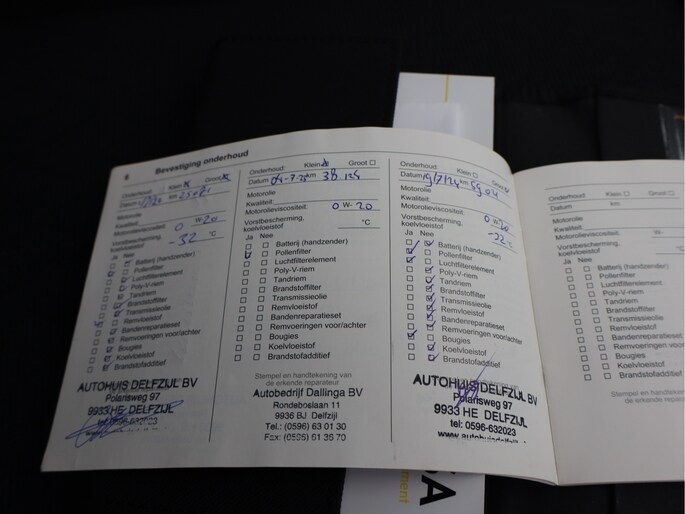 6
Bevestiging onderhoud
Onderhoud: Klein Groot
Datum km
Motorolie
Kwaliteit:
Motorolieviscositeit: 0 W-20
Vorstbescherming,
koelvloeistof -32 °C
Ja Nee
Batterij (handzender)
Pollenfilter
Luchtfilterelement
Poly-V-riem
Tandriem
Brandstoffilter
Transmissieolie
Remvloeistof
Bandenreparatieset
Remvoeringen voor/achter
Bougies
Koelvloeistof
Brandstofadditief
AUTOHUIS DELFZIJL BV
Polarisweg 97
9933 HE DELFZIJL
Onderhoud: Klein Groot
Datum km 38 124
Motorolie
Kwaliteit:
Motorolieviscositeit: 0 W- 20
Vorstbescherming,
koelvloeistof °C
Ja Nee
Batterij (handzender)
Pollenfilter
Luchtfilterelement
Poly-V-riem
Tandriem
Brandstoffilter
Transmissieolie
Remvloeistof
Bandenreparatieset
Remvoeringen voor/achter
Bougies
Koelvloeistof
Brandstofadditief
Stempel en handtekening van
de erkende reparateur
Autobedrijf Dallinga BV
Rondeboslaan 11
9936 BJ Delfzijl
Tel.: (0596) 63 01 30
Fax: (0596) 61 35 70
Onderhoud: Klein Groot
Datum 19/7/24 km
Motorolie
Kwaliteit:
Motorolieviscositeit: 0 W-
Vorstbescherming,
koelvloeistof
Ja Nee
Batterij (handzender)
Pollenfilter
Luchtfilterelement
Poly-V-riem
Tandriem
Brandstoffilter
Transmissieolie
Remvloeistof
Bandenreparatieset
Remvoeringen voor/achter
Bougies
Koelvloeistof
Brandstofadditief
AUTOHUIS DELFZIJL BV
Polarisweg 97
9933 HE DELFZIJL
tel: 0596-632023
Onderhoud: Klein Groot
Datum km
Motorolie
Kwaliteit:
Motorolieviscositeit: W-
Vorstbescherming,
koelvloeistof °C
Ja Nee
Batterij (handzender)
Pollenfilter
Luchtfilterelement
Poly-V-riem
Tandriem
Brandstoffilter
Transmissieolie
Remvloeistof
Bandenreparatieset
Remvoeringen voor/achter
Bougies
Koelvloeistof
Brandstofadditief
Stempel en handtekening
de erkende reparateur